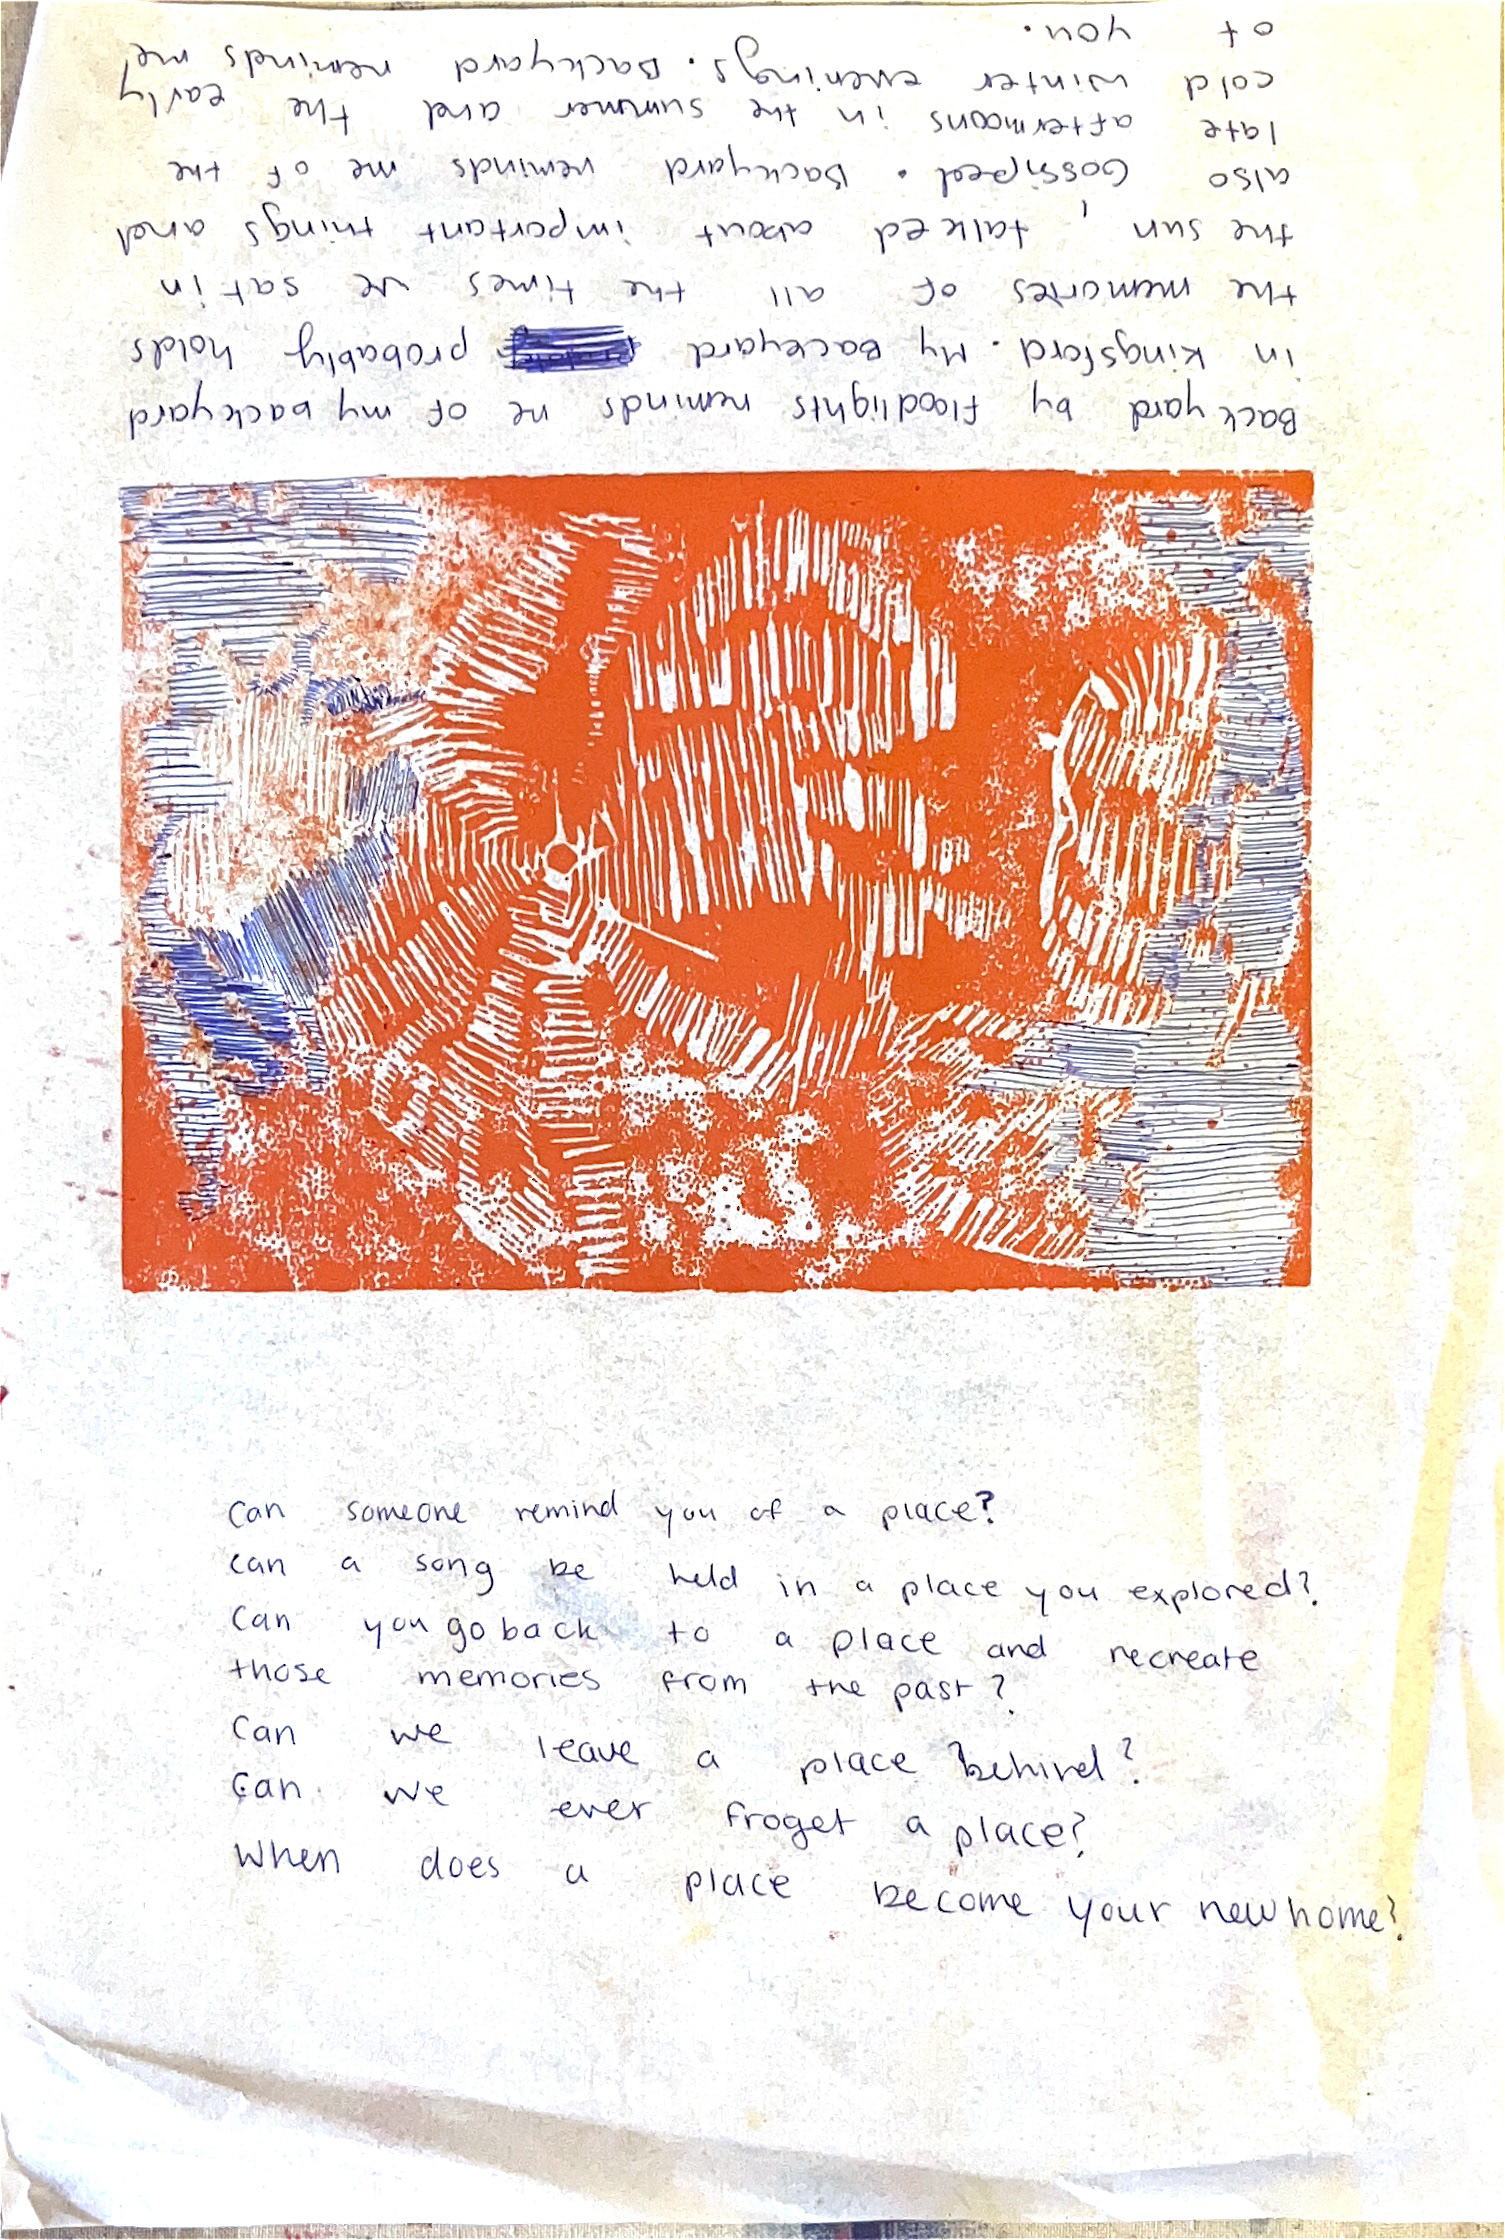 Backyard by floodlights reminds me of my backyard
in Kingsford. My Backyard probably holds
the memories of all the times we sat in
the sun, talked about important things and
also Gossiped. Backyard reminds me of the
late afternoons in the summer and the early
cold winter evenings. Backyard reminds me
of you.
Can someone remind you of a place?
can a song be held in a place you explored?
Can you go back to a place and recreate
those memories from the past?
Can we leave a place behind?
Can we ever froget a place?
When does a place become your new home?